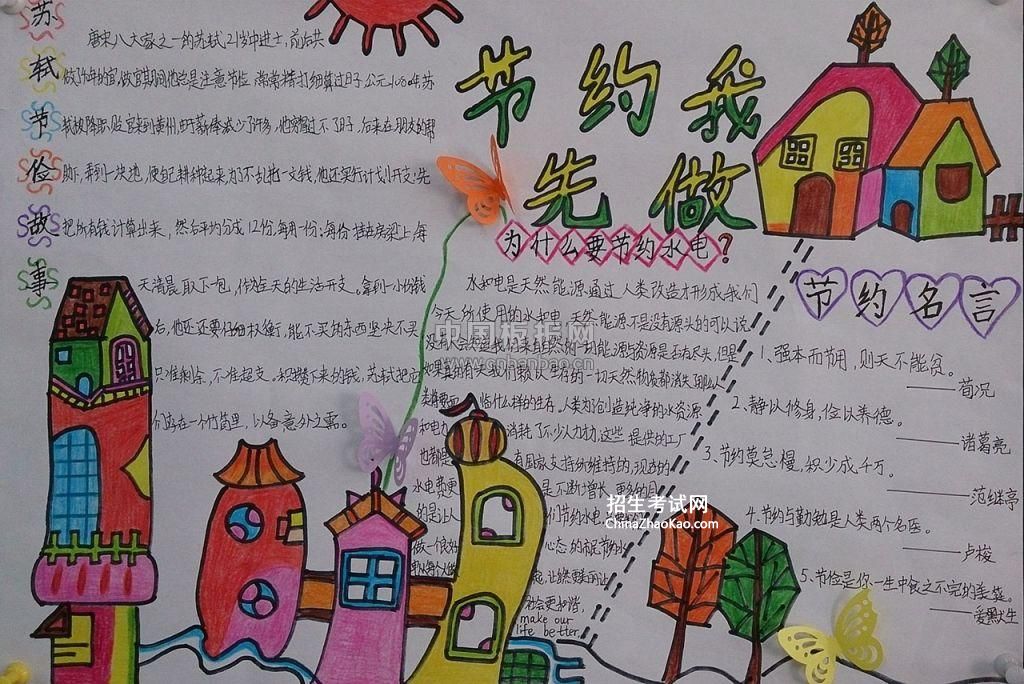 苏轼节俭故事
唐宋八大家之一的苏轼21岁中进士,前后共
做了40年的官,做官期间他总是注意节俭,常常精打细算过日子.公元1080年,苏
轼被降职贬官来到黄州,由于薪俸减少了许多,他穷得过不了日子,后来在朋友的帮
助下,弄到一块地,便自己耕种起来,为了不乱花一文钱,他还实行计划开支:先
把所有钱计算出来,然后平均分成12份,每月一份;每份挂在房梁上,每
天清晨取下一包,作为全天的生活开支。拿到一小份钱
后,他还要仔细权衡,能不买的东西坚决不买
只准剩余,不准超支。积攒下来的钱,苏轼把它
们存在一个竹筒里,以备意外之需。
节约我
先做
为什么要节约水电?
水和电是天然能源通过人类改造才形成,我们
今天所使用的水和电,天然能源不是没有源头的可以说
没有人会想我们未有的一切能源资源是否有尽头,但是
如果真的有头我们赖以生存的一切天然物质都消失,那么人
类将要面临什么样的生存,人类为了创造纯净的水资源
和电力 消耗了不少人力物力,这些 提供的工厂
也都是 有国家支持才维持的,现在的
水电费更 是不断增长,更多的目
的是让人 们节约水电
做一个良好 心态的市民节约水
社会更和谐,
make our
life better.
节约名言
1、强本而节用,则天不能贫。
——荀况
2、静以修身,俭以养德。
——诸葛亮
3、节约莫怠慢,积少成千万。
——范继亭
4、节约与勤勉是人类两个名医。
——卢梭
5、节俭是你一生中食之不完的美筵。
——爱默生
中国板报网
www.cnbanbao.cn
招生考试网
ChinaZhaoKao.com